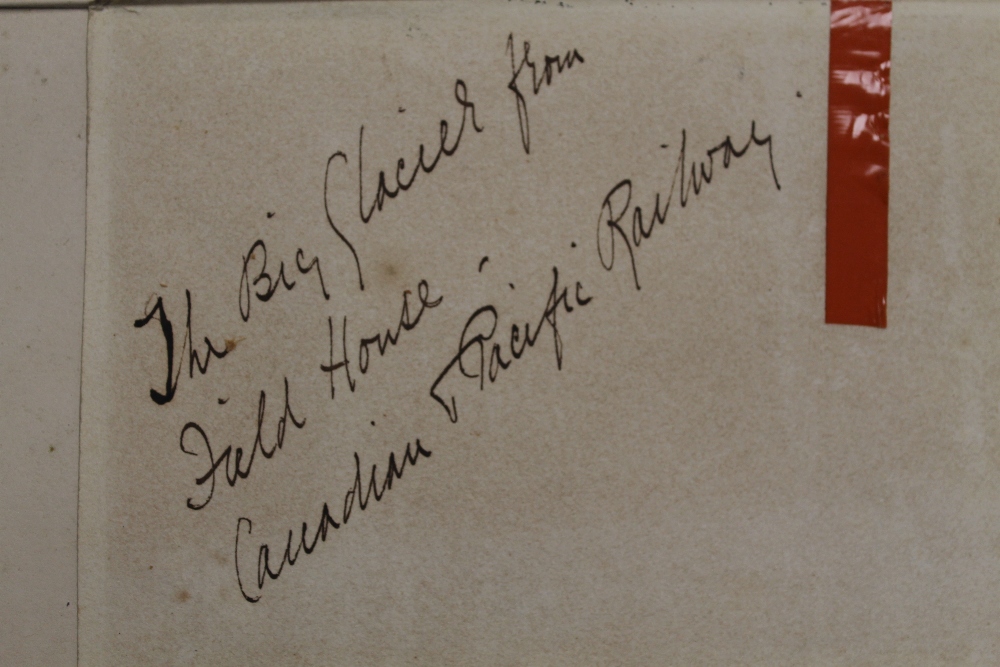 The Big Glacier from
Field House -
Canadian Pacific Railway